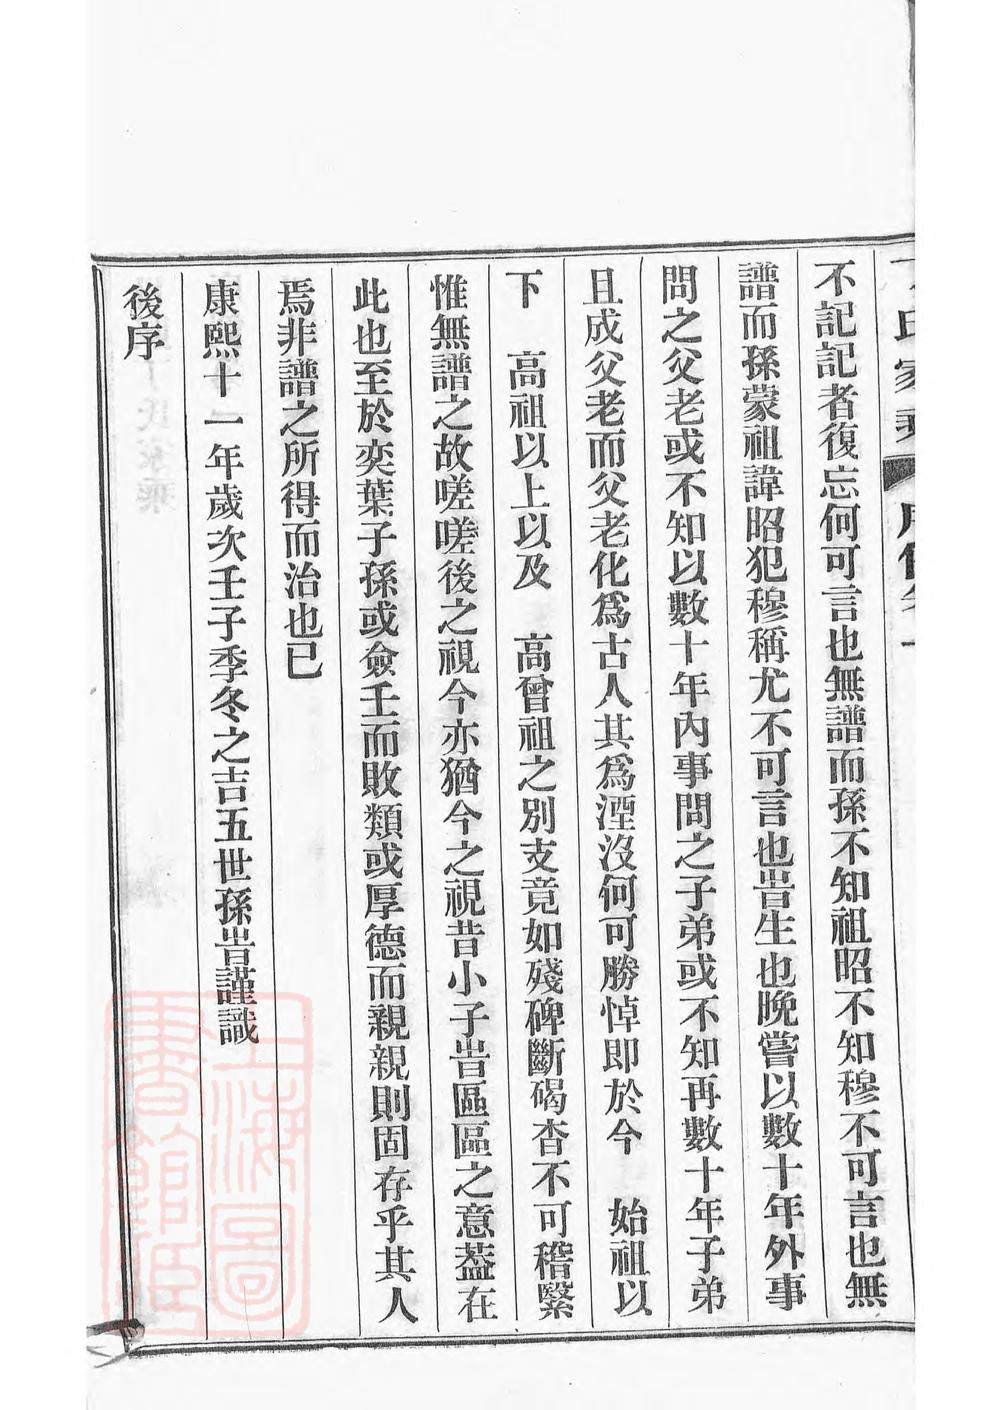 氏家乘
不記記者復忘何可言也無譜而孫不知祖昭不知穆不可言也無
譜而孫蒙祖諱昭犯穆稱尤不可言也旹生也晚嘗以數十年外事
問之父老或不知以數十年內事問之子弟或不知再數十年子弟
且成父老而父老化爲古人其爲湮沒何可勝悼即於今　始祖以
下　高祖以上以及　高曾祖之別支竟如殘碑斷碣杳不可稽緊
惟無譜之故嗟嗟後之視今亦猶今之視昔小子旹區區之意葢在
此也至於奕葉子孫或僉壬而敗類或厚德而親親則固存乎其人
焉非譜之所得而治也已
康熙十一年歲次壬子季冬之吉五世孫旹謹識
後序
上海圖
書館藏